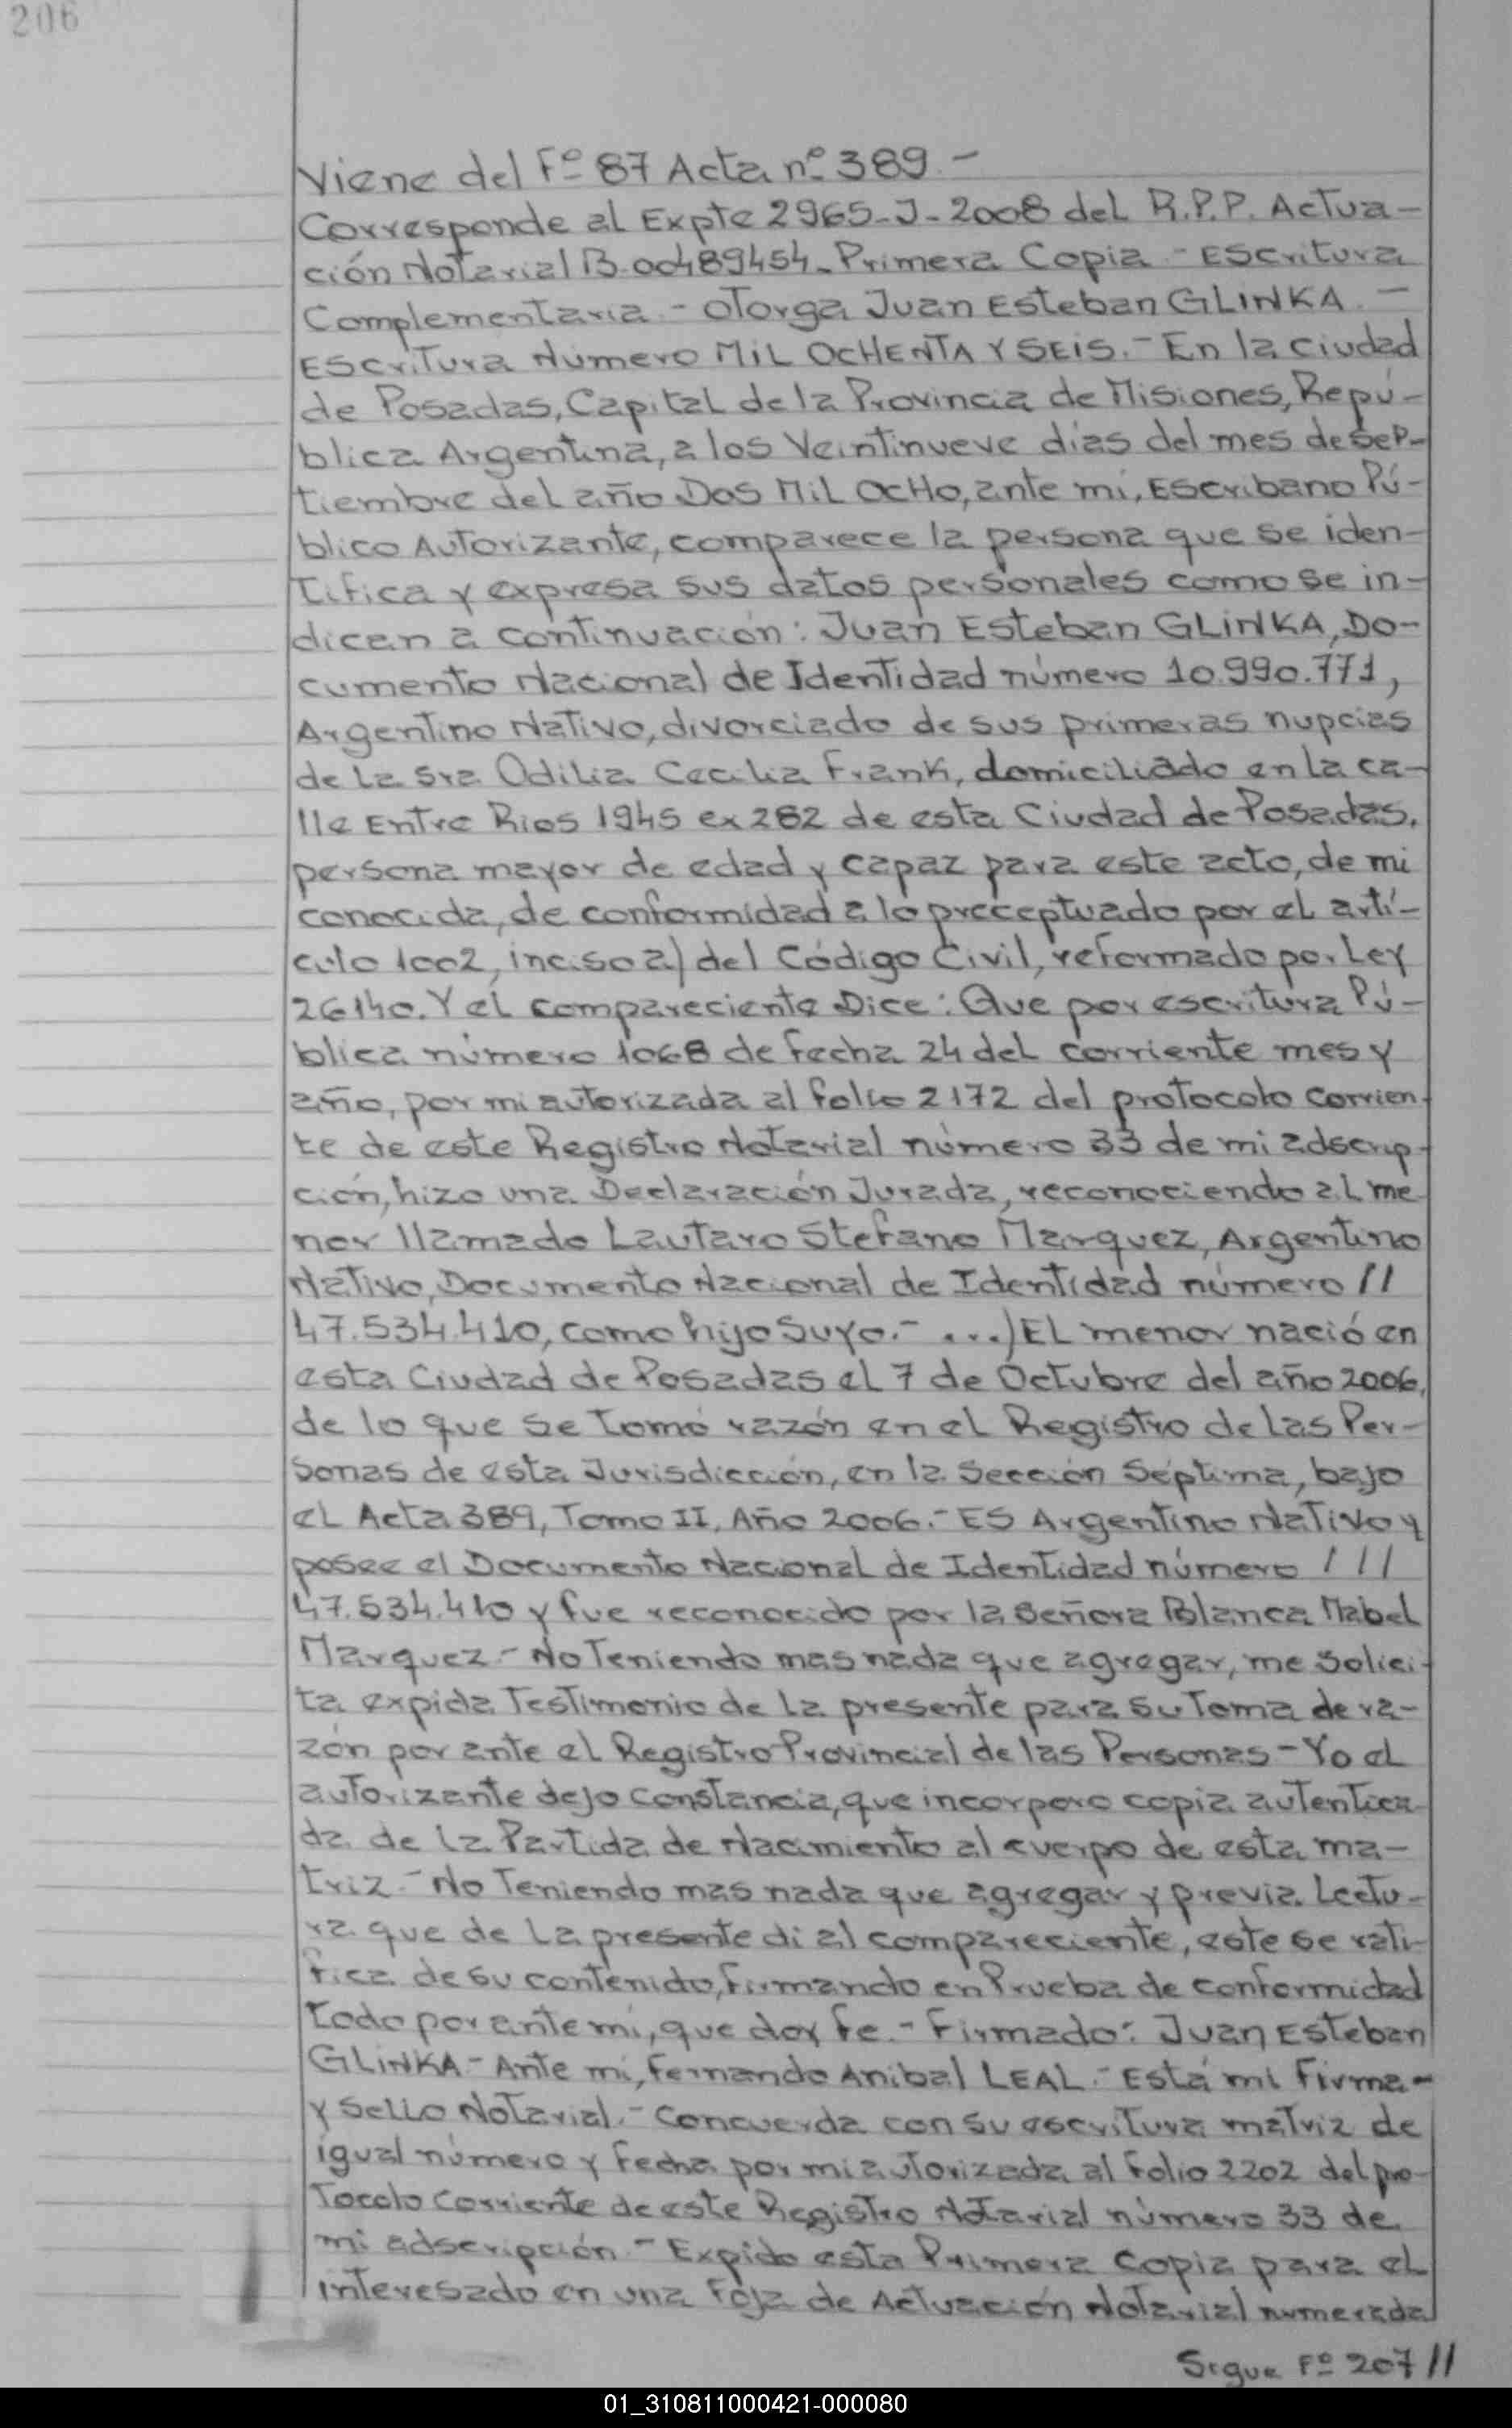 206
Viene del Fº 87 Acta nº 389.-
Corresponde al Expte 2965-J-2008 del R.P.P. Actua-
ción Notarial B-00489454-Primera Copia-Escritura
Complementaria.- Otorga Juan Esteban GLINKA.-
Escritura Número MIL OCHENTA Y SEIS.- En la ciudad
de Posadas, Capital de la Provincia de Misiones, Repú-
blica Argentina, a los Veintinueve días del mes de Sep-
tiembre del año Dos Mil Ocho, ante mí, Escribano Pú-
blico Autorizante, comparece la persona que se iden-
tifica y expresa sus datos personales como se in-
dican a continuación: Juan Esteban GLINKA, Do-
cumento Nacional de Identidad número 10.990.771,
Argentino Nativo, divorciado de sus primeras nupcias
de La Sra Odilia Cecilia Frank, domiciliado en la ca-
lle Entre Rios 1945 ex 282 de esta Ciudad de Posadas,
persona mayor de edad y capaz para este acto, de mi
conocida, de conformidad a lo preceptuado por el artí-
culo 1002, inciso a) del Código Civil, reformado por Ley
26140. Y el compareciente Dice: Que por escritura Pú-
blica número 1068 de fecha 24 del corriente mes y
año, por mi autorizada al folio 2172 del protocolo corrien-
te de este Registro Notarial número 33 de mi adscrip-
ción, hizo una Declaración Jurada, reconociendo al me
nor llamado Lautaro Stefano Marquez, Argentino
Nativo, Documento Nacional de Identidad número //
47.534.410, como hijo Suyo.- ...) El menor nació en
esta Ciudad de Posadas el 7 de Octubre del año 2006,
de lo que se tomó razón en el Registro de Las Per-
sonas de esta Jurisdicción, en la Sección Séptima, bajo
el Acta 389, Tomo II, Año 2006.- Es Argentino Nativo y
posee el Documento Nacional de Identidad número ///
47.534.410 y fue reconocido por la Señora Blanca Mabel
Marquez.- No Teniendo mas nada que agregar, me solici-
ta expida Testimonio de La presente para su Toma de ra-
zón por ante el Registro Provincial de las Personas-Yo el
autorizante dejo constancia, que incorporo copia autentica-
da de La Partida de Nacimiento al cuerpo de esta ma-
triz.- No Teniendo mas nada que agregar y previa Lectu-
ra que de La presente di al compareciente, este se rati-
fica de su contenido, firmando en Prueba de conformidad
todo por ante mí, que doy fe.- Firmado: Juan Esteban
GLINKA.- Ante mí, Fernando Anibal LEAL.- Está mi Firma-
y Sello Notarial.- Concuerda con su escritura matriz de
igual número y Fecha por mi autorizada al Folio 2202 del pro-
tocolo corriente de este Registro Notarial número 33 de
mi adscripción.- Expido esta Primera Copia para el
interesado en una Foja de Actuación Notarial numerada
Sigue Fº 207 //
01_310811000421-000080